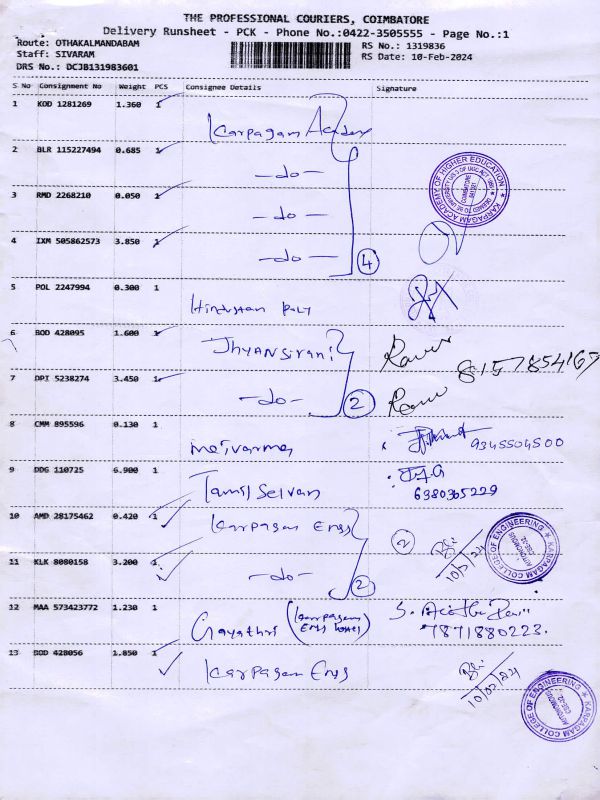 THE PROFESSIONAL COURIERS, COIMBATORE
Delivery Runsheet - PCK - Phone No.:0422-3505555 - Page No.:1
Route: OTHAKALMANDABAM RS No.: 1319836
Staff: SIVARAM RS Date: 10-Feb-2024
DRS No.: DCJB131983601
S No Consignment No Weight PCS Consignee Details Signature
1 KOD 1281269 1.360 1
Karpagam Academy
2 BLR 115227494 0.685 1
-do-
3 RMD 2268210 0.050 1
-do-
4 IXM 505862573 3.850 1
-do- 4
KARPAGAM ACADEMY OF HIGHER EDUCATION
5 POL 2247994 0.300 1
Hindustan Poly
6 BOD 428095 1.600 1
Jhyansirani
8157854167
7 DPI 5238274 3.450 1
-do- 2
8 CMM 895596 0.130 1
9345504500
9 DDG 110725 6.900 1
Tamil Selvan
6380365229
10 AMD 28175462 0.420 1
Karpagam Engg 2
11 KLK 8080158 3.200 1
-do- 2
10/02/24
KARPAGAM COLLEGE OF ENGINEERING
AUTONOMOUS
CBE-32.
12 MAA 573423772 1.230 1
Gayathri (Karpagam Engg Hostel)
7871880223.
13 BOD 428056 1.850 1
Karpagam Engg
10/02/24
KARPAGAM COLLEGE OF ENGINEERING
AUTONOMOUS
CBE-32.